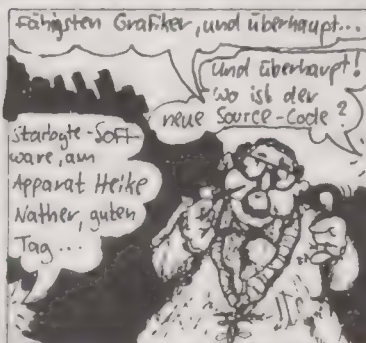 fähigsten Grafiker, und überhaupt...
Und überhaupt!
wo ist der
neue Source-Code?
Starbyte-Soft-
ware, am
Apparat Heike
Nather, guten
Tag...